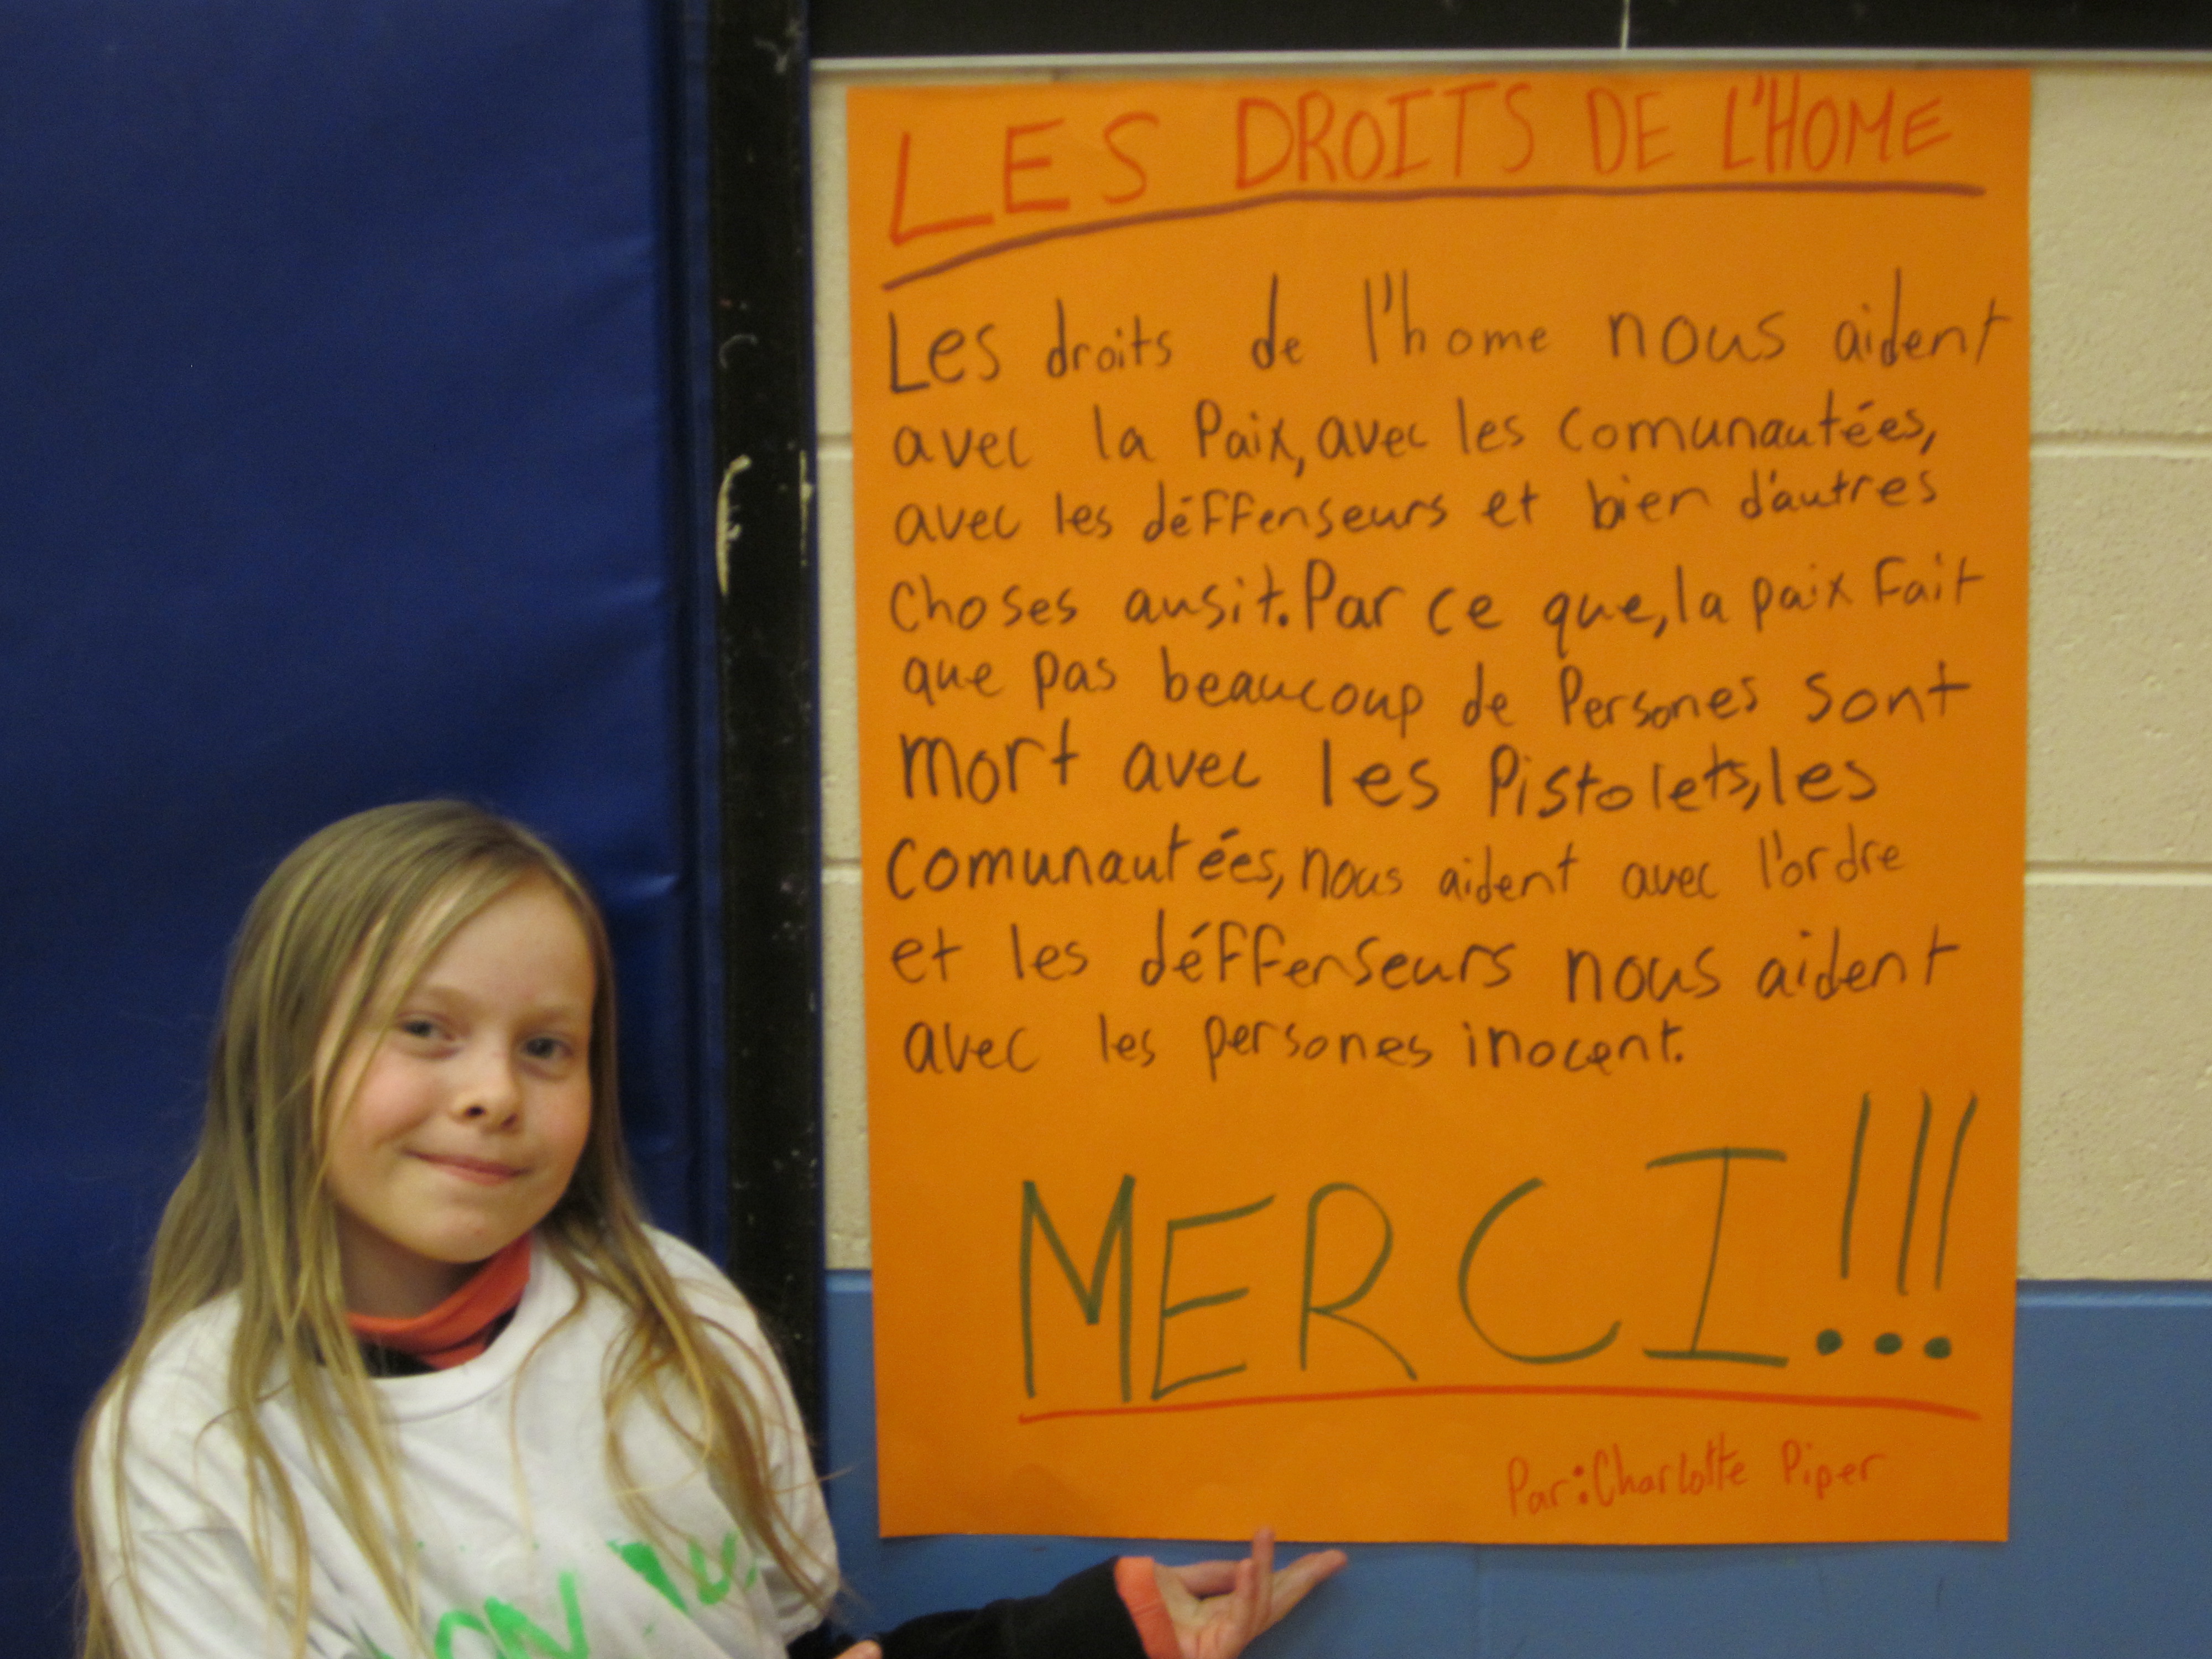 LES DROITS DE L'HOME
Les droits de l'home nous aident
avec la Paix, avec les comunautées,
avec les déffenseurs et bien d'autres
choses ausit. Par ce que, la paix fait
que pas beaucoup de Persones sont
mort avec les Pistolets, les
comunautées, nous aident avec l'ordre
et les déffenseurs nous aident
avec les persones inocent.
MERCI!!!
Par: Charlotte Piper